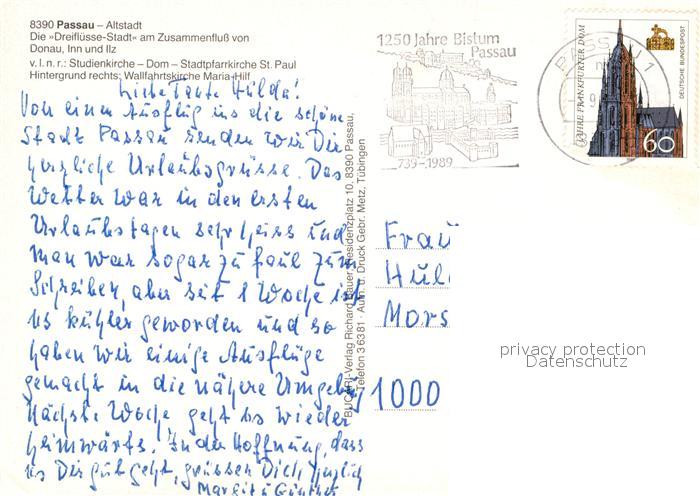 8390 Passau – Altstadt
Die »Dreiflüsse-Stadt« am Zusammenfluß von
Donau, Inn und Ilz
v. l. n. r.: Studienkirche – Dom – Stadtpfarrkirche St. Paul
Hintergrund rechts: Wallfahrtskirche Maria-Hilf
Liebe Tante Hulda!
Von einem Ausflug in die schöne
Stadt Passau senden wir Dir
herzliche Urlaubsgrüsse. Das
Wetter war in den ersten
Urlaubstagen sehr heiss und
man war sogar zu faul zum
Schreiben, aber seit 1 Woche ist
es kühler geworden und so
haben wir einige Ausflüge
gemacht in die nähere Umgebung
Nächste Woche geht es wieder
heimwärts. In der Hoffnung, dass
es Dir gut geht, grüssen Dich herzlich
Margit u Günther
BUCARI-Verlag Richard Residenzplatz 10, 8390 Passau,
Telefon 3 6381 · Druck Gebr. Metz, Tübingen
1250 Jahre Bistum
Passau
739-1989
PASSAU 1
JAHRE FRANKFURTER DOM
DEUTSCHE BUNDESPOST
60
Frau
Hul
Mors
1000
privacy protection
Datenschutz